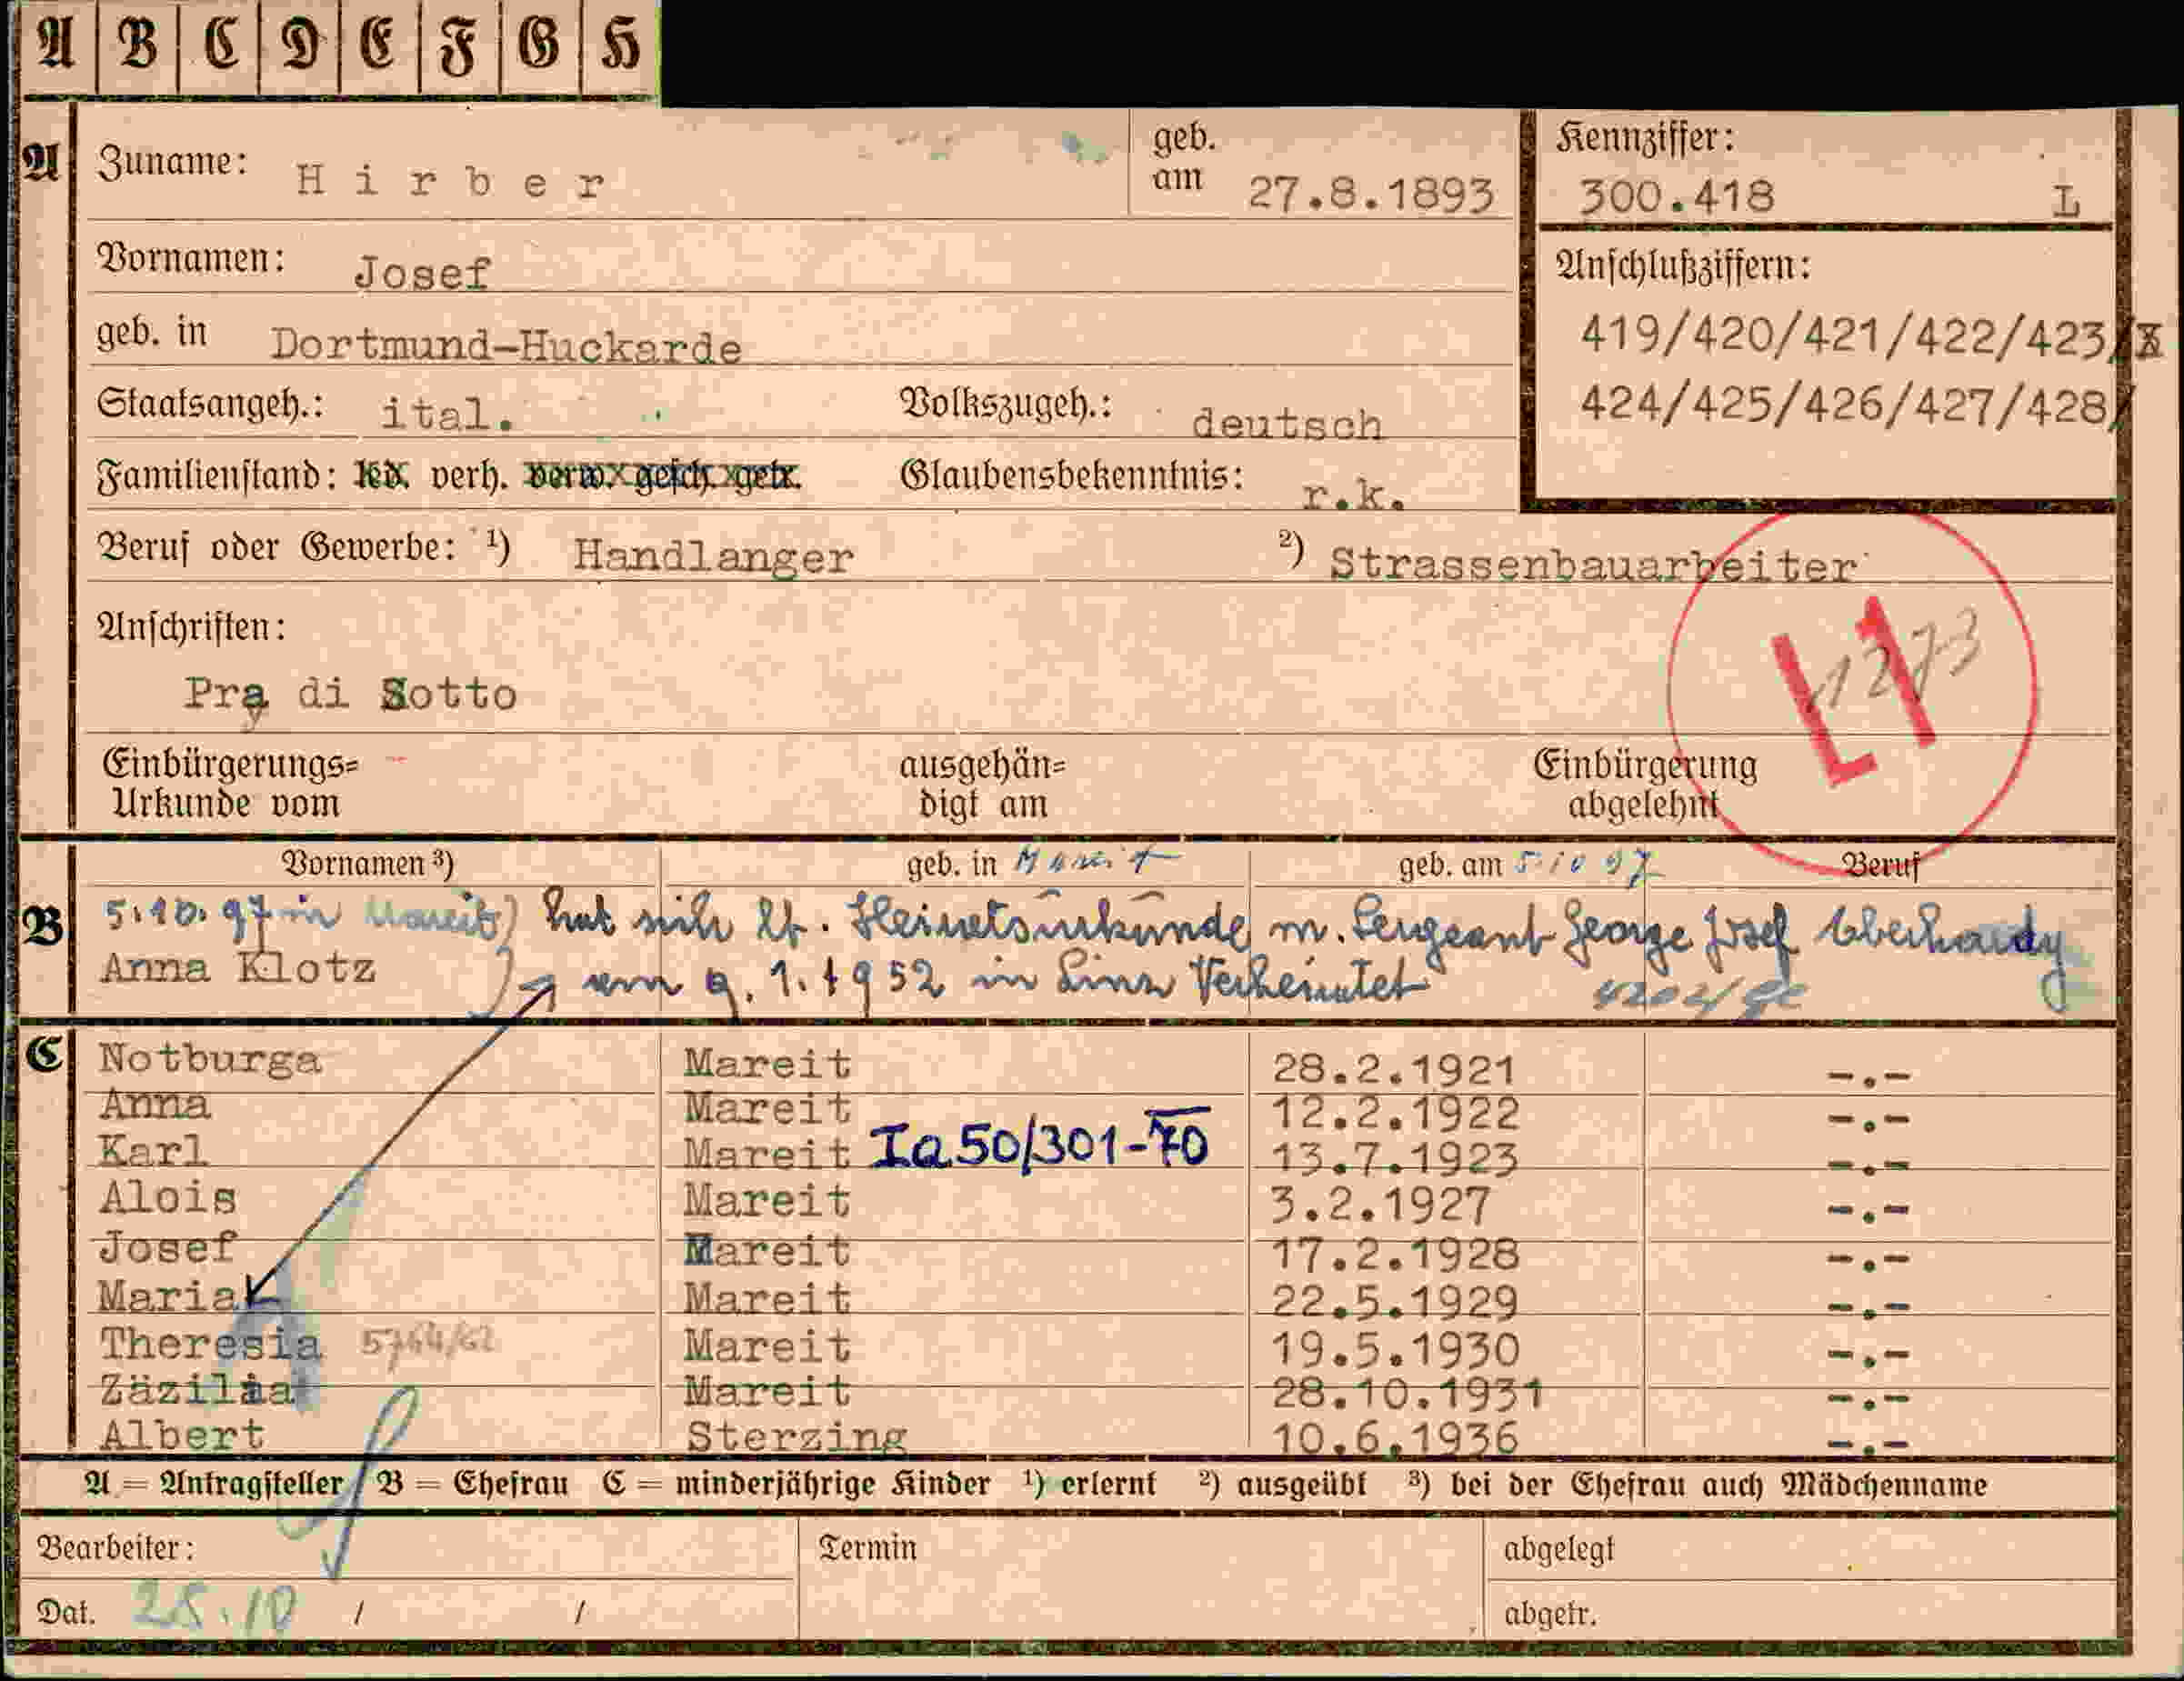 A B C D E F G H
A Zuname: Hirber geb. am 27.8.1893 Kennziffer: 300.418 L
Vornamen: Josef Anschlußziffern:
geb. in Dortmund-Huckarde 419/420/421/422/423/
Staatsangeh.: ital. Volkszugeh.: deutsch 424/425/426/427/428/
Familienstand: led. verh. verw. gesch. getr. Glaubensbekenntnis: r.k.
Beruf oder Gewerbe: ¹) Handlanger ²) Strassenbauarbeiter
Anschriften:
L1 1273
Pra di Sotto
Einbürgerungs= ausgehän= Einbürgerung
Urkunde vom digt am abgelehnt
Vornamen ³) geb. in Mareit geb. am 5 10 97 Beruf
B 5.10.97 in Mareit) hat sich lt. Heiratsurkunde m. Sergeant George Josef Eberhardy
Anna Klotz ) am 9.1.1952 in Linz Verheiratet
C Notburga Mareit 28.2.1921 -.-
Anna Mareit 12.2.1922 -.-
Karl Mareit Ia50/301-70 13.7.1923 -.-
Alois Mareit 3.2.1927 -.-
Josef Mareit 17.2.1928 -.-
Maria Mareit 22.5.1929 -.-
Theresia 5764/62 Mareit 19.5.1930 -.-
Zäzilia Mareit 28.10.1931 -.-
Albert Sterzing 10.6.1936 -.-
A = Antragsteller B = Ehefrau C = minderjährige Kinder ¹) erlernt ²) ausgeübt ³) bei der Ehefrau auch Mädchenname
Bearbeiter: Termin abgelegt
Dat. 25.10 / / abgetr.